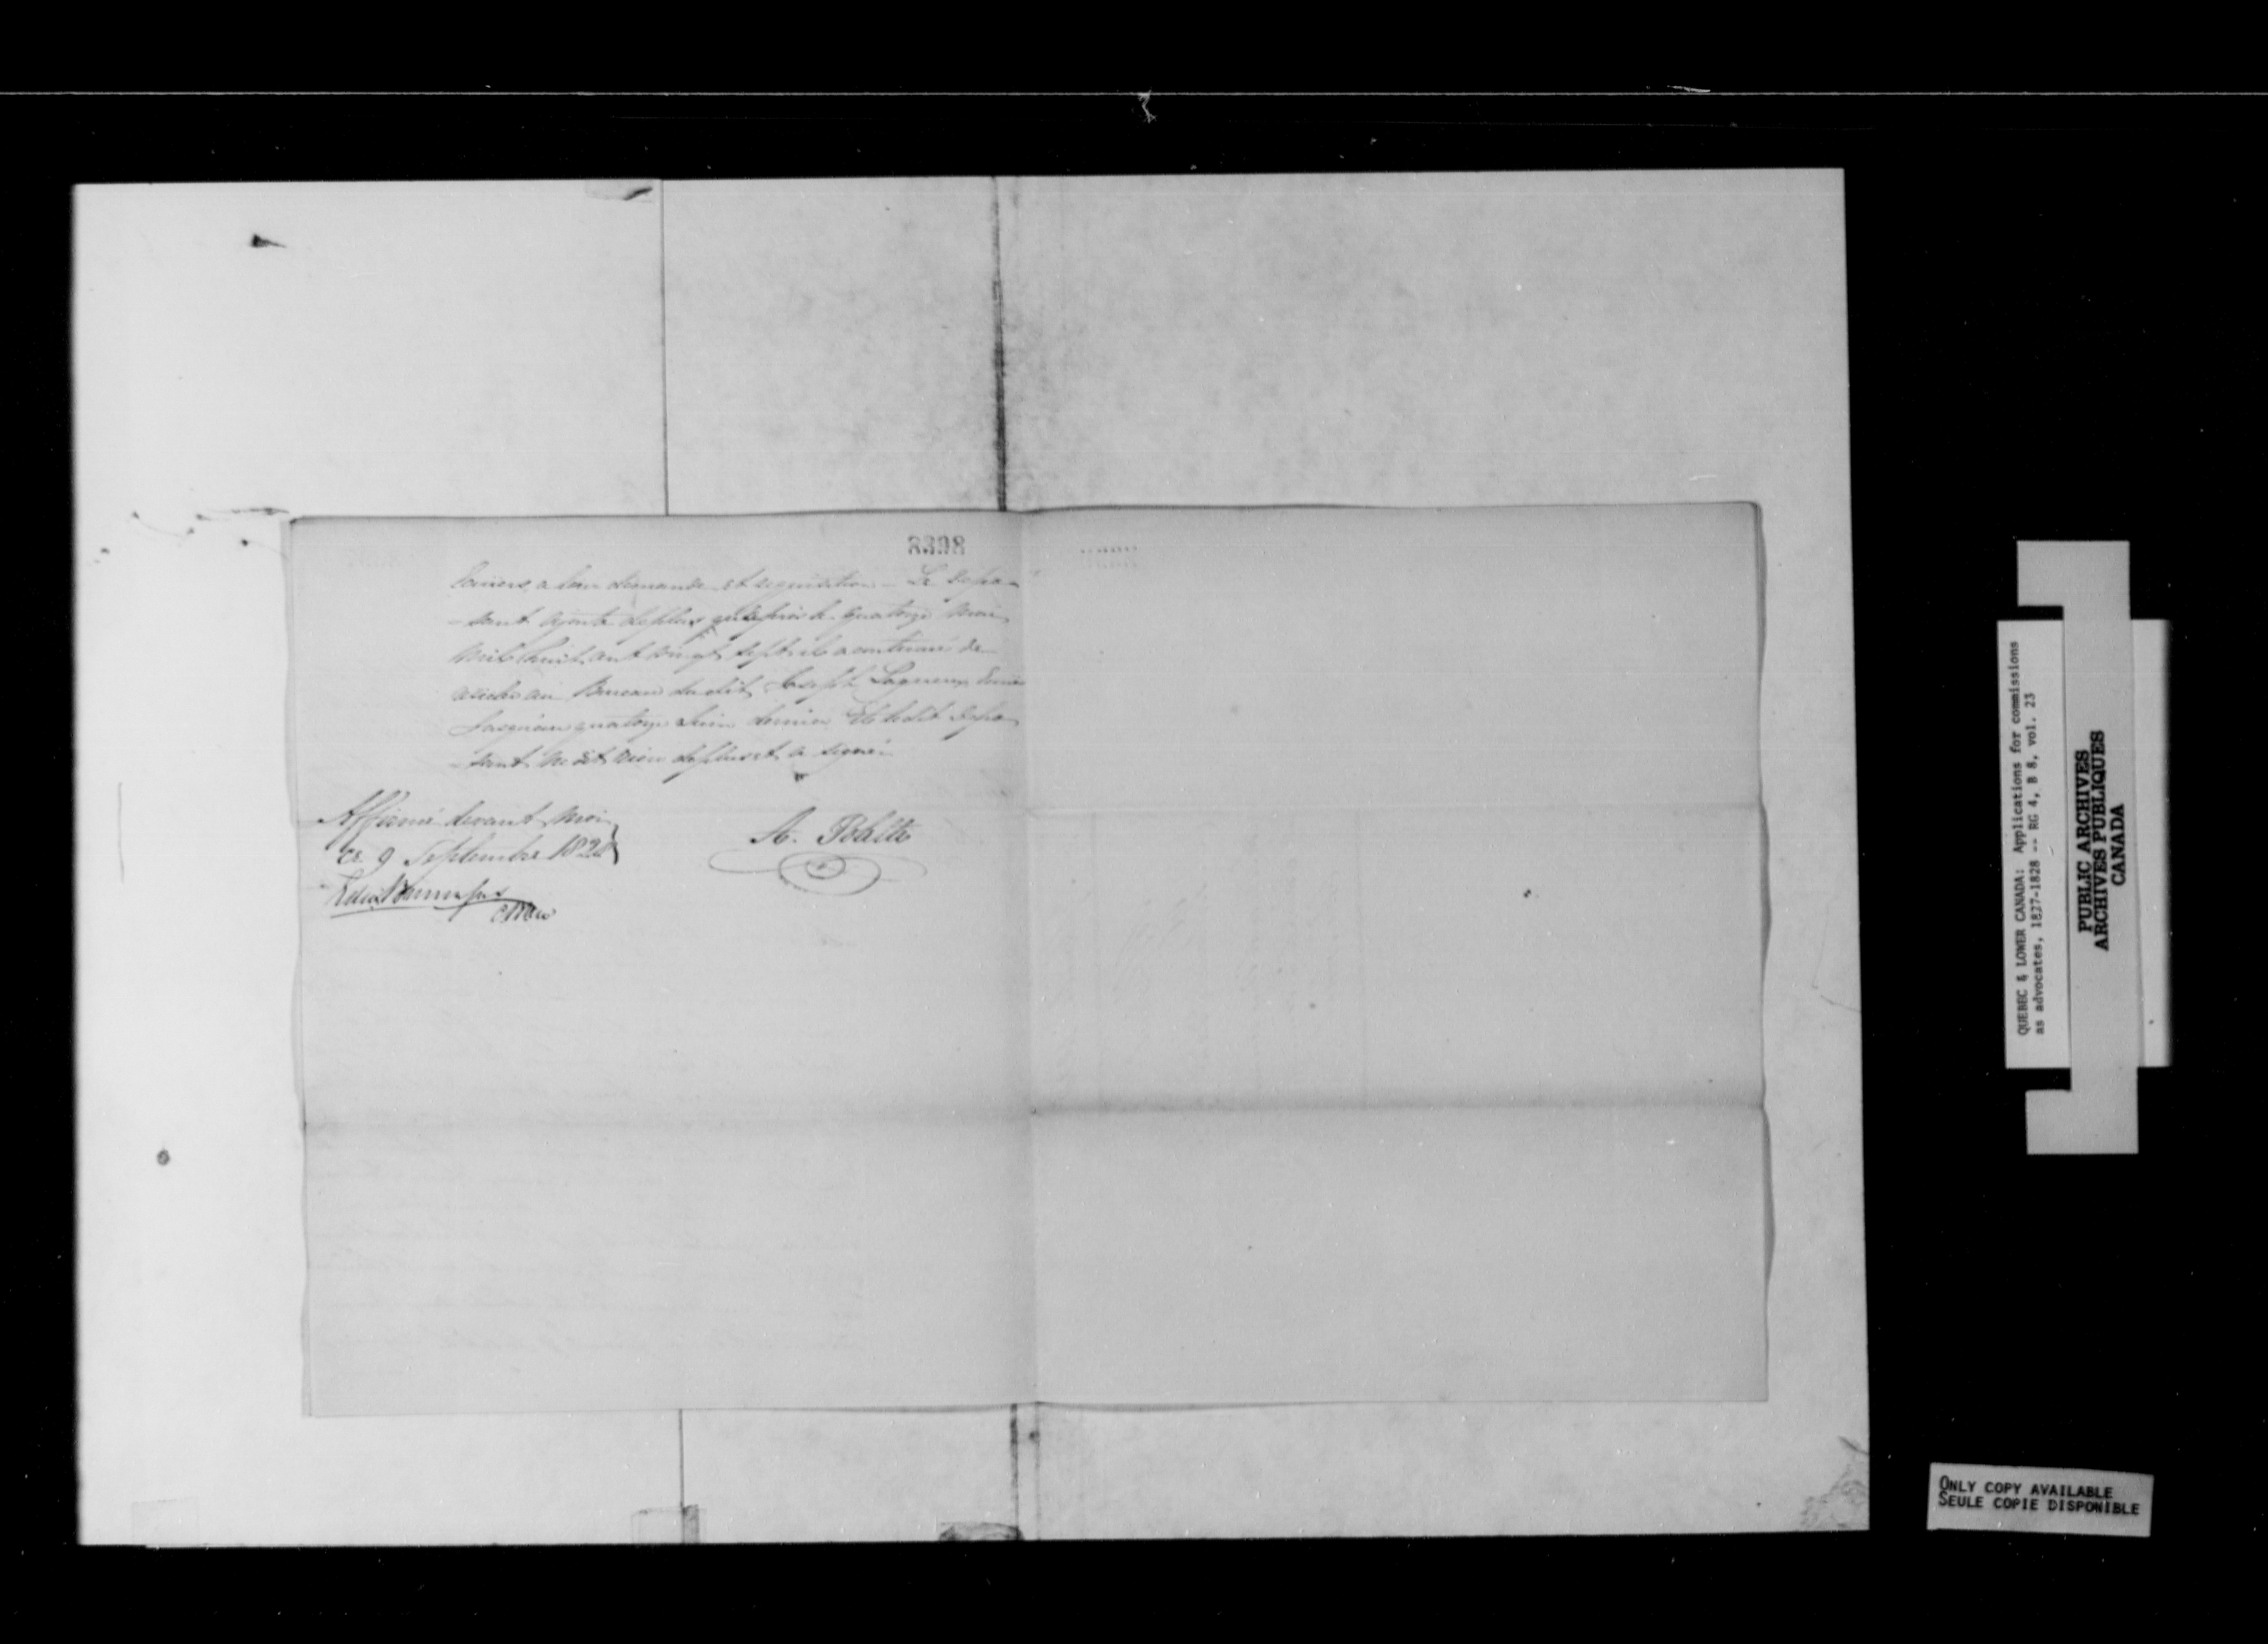 8398
a leur demande et requisition - Le depo-
-sant ajoute deplus que depuis le quatorze Mai
Mil huit cent vingt sept il a continué de
au Bureau dudit Joseph Lagueux
Jusqu'au quatorze Juin dernier Et ledit depo-
-sant ne dit rien deplus et a signé
Affirmé devant Moi
ce 9 Septembre 1828
A.
QUEBEC & LOWER CANADA: Applications for commissions
as advocates, 1827-1828 -- RG 4, B 8, vol. 23
PUBLIC ARCHIVES
ARCHIVES PUBLIQUES
CANADA
ONLY COPY AVAILABLE
SEULE COPIE DISPONIBLE